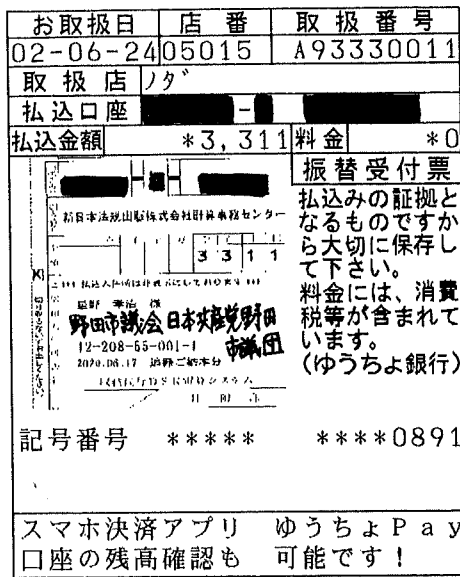 お取扱日 店番 取扱番号
02-06-24 05015 A93330011
取扱店 ノダ
払込口座 -
払込金額 *3,311 料金 *0
振替受付票
払込みの証拠と
なるものですか
ら大切に保存し
て下さい。
料金には、消費
税等が含まれて
います。
(ゆうちょ銀行)
新日本法規出版株式会社計算事務センター
3311
様
野田市議会日本共産党野田
市議団
12-208-55-001-1
2020.06.17 追録ご納本分
記号番号 ***** ****0891
スマホ決済アプリ ゆうちょPay
口座の残高確認も 可能です!